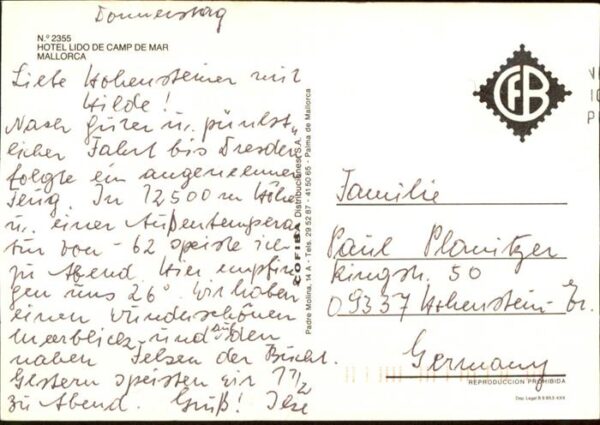 Donnerstag
N.º 2355
HOTEL LIDO DE CAMP DE MAR
MALLORCA
Liebe Hohensteiner mit
Hilde!
Nach guter u. pünkt-
licher Fahrt bis Dresden
folgte ein angenehmer
Flug. In 12500 m Höhe
u. einer Außentempera
tur von -62 speiste ich
zu Abend. Hier empfin
gen uns 26° Wir haben
einen wunderschönen
Meerblick und auf den
nahen Felsen der Bucht.
Gestern speisten wir 17½
zu Abend. Gruß! Ilse
COFIBA Distribuciones, S.A.
Padre Molina, 14 A - Tels. 29 52 87 - 41 50 65 - Palma de Mallorca
CFB
Familie
Paul Planitzer
Ringstr. 50
09337 Hohenstein-Er.
Germany
REPRODUCCION PROHIBIDA